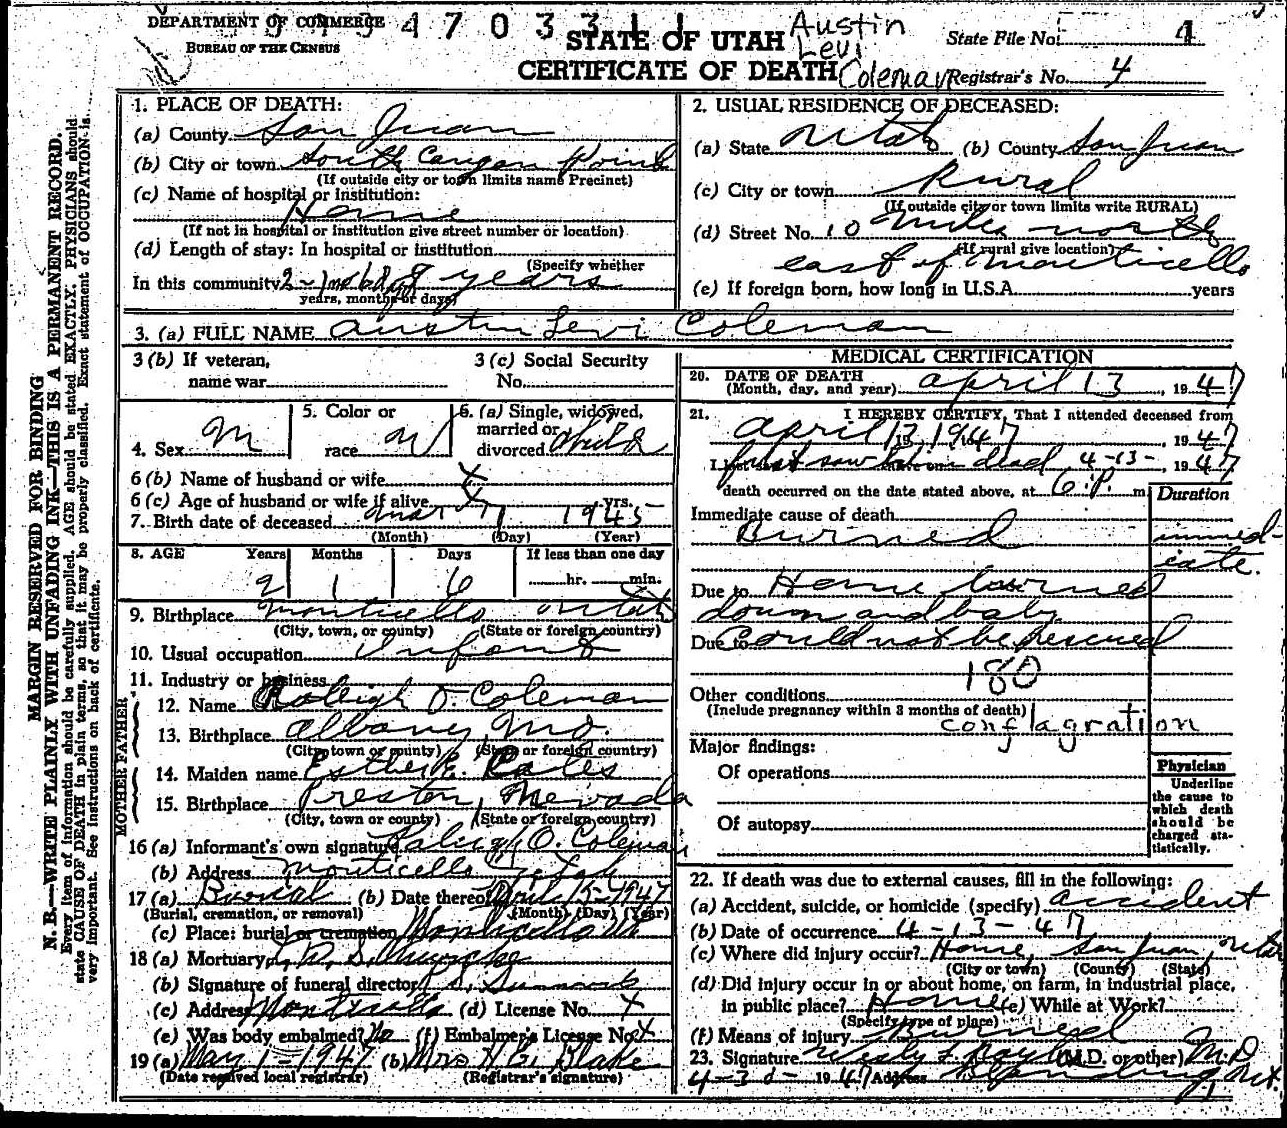 DEPARTMENT OF COMMERCE
BUREAU OF THE CENSUS
4 7 0 3 3 1 1
STATE OF UTAH
CERTIFICATE OF DEATH
Austin
Levi
Coleman
State File No. 4
Registrar's No. 4
MARGIN RESERVED FOR BINDING
N. B.—WRITE PLAINLY WITH UNFADING INK—THIS IS A PERMANENT RECORD.
Every item of information should be carefully supplied. AGE should be stated EXACTLY. PHYSICIANS should
state CAUSE OF DEATH in plain terms, so that it may be properly classified. Exact statement of OCCUPATION is
very important. See instructions on back of certificate.
1. PLACE OF DEATH:
(a) County San Juan
(b) City or town South Canyon Point
(If outside city or town limits name Precinct)
(c) Name of hospital or institution:
Home
(If not in hospital or institution give street number or location)
(d) Length of stay: In hospital or institution
(Specify whether
In this community 2 years
years, months or days)
2. USUAL RESIDENCE OF DECEASED:
(a) State Utah (b) County San Juan
(c) City or town Rural
(If outside city or town limits write RURAL)
(d) Street No. 10 miles north
(If rural give location)
east of Monticello
(e) If foreign born, how long in U.S.A. years
3. (a) FULL NAME Austin Levi Coleman
3 (b) If veteran,
name war
3 (c) Social Security
No.
4. Sex M
5. Color or
race W
6. (a) Single, widowed,
married or
divorced Child
6 (b) Name of husband or wife x
6 (c) Age of husband or wife if alive x yrs.
7. Birth date of deceased Mar 7 1945
(Month) (Day) (Year)
8. AGE Years Months Days If less than one day
2 1 6 hr. min.
9. Birthplace Monticello Utah
(City, town, or county) (State or foreign country)
10. Usual occupation Infant
11. Industry or business
FATHER
12. Name Raleigh O. Coleman
13. Birthplace Albany, Mo.
(City, town or county) (State or foreign country)
MOTHER
14. Maiden name Esther E.
15. Birthplace Preston, Nevada
(City, town, or county) (State or foreign country)
16 (a) Informant's own signature Raleigh O. Coleman
(b) Address Monticello Utah
17 (a) Burial (b) Date thereof April 15-1947
(Burial, cremation, or removal) (Month) (Day) (Year)
(c) Place: burial or cremation Monticello Ut
18 (a) Mortuary
(b) Signature of funeral director
(c) Address Monticello (d) License No. x
(e) Was body embalmed? No (f) Embalmer's License No. x
19 (a) May 1 - 1947 (b) Mrs. H. G. Blake
(Date received local registrar) (Registrar's signature)
MEDICAL CERTIFICATION
20. DATE OF DEATH
(Month, day, and year) April 13, 1947
21. I HEREBY CERTIFY, That I attended deceased from
April 13 1947, 1947
first saw dead 4-13-, 1947
death occurred on the date stated above, at 6 P. m
Duration
Immediate cause of death
Burned immed-
iate.
Due to Home burned
down and baby
Due to could not be rescued
180
Other conditions
(Include pregnancy within 3 months of death)
conflagration
Major findings:
Of operations
Of autopsy
Physician
Underline
the cause to
which death
should be
charged sta-
tistically.
22. If death was due to external causes, fill in the following:
(a) Accident, suicide, or homicide (specify) accident
(b) Date of occurrence 4-13-47
(c) Where did injury occur? Home, San Juan, Utah
(City or town) (County) (State)
(d) Did injury occur in or about home, on farm, in industrial place,
in public place? Home (e) While at Work?
(Specify type of place)
(f) Means of injury Burned
23. Signature (M.D. or other) M.D.
1947 Address Blanding, Ut.